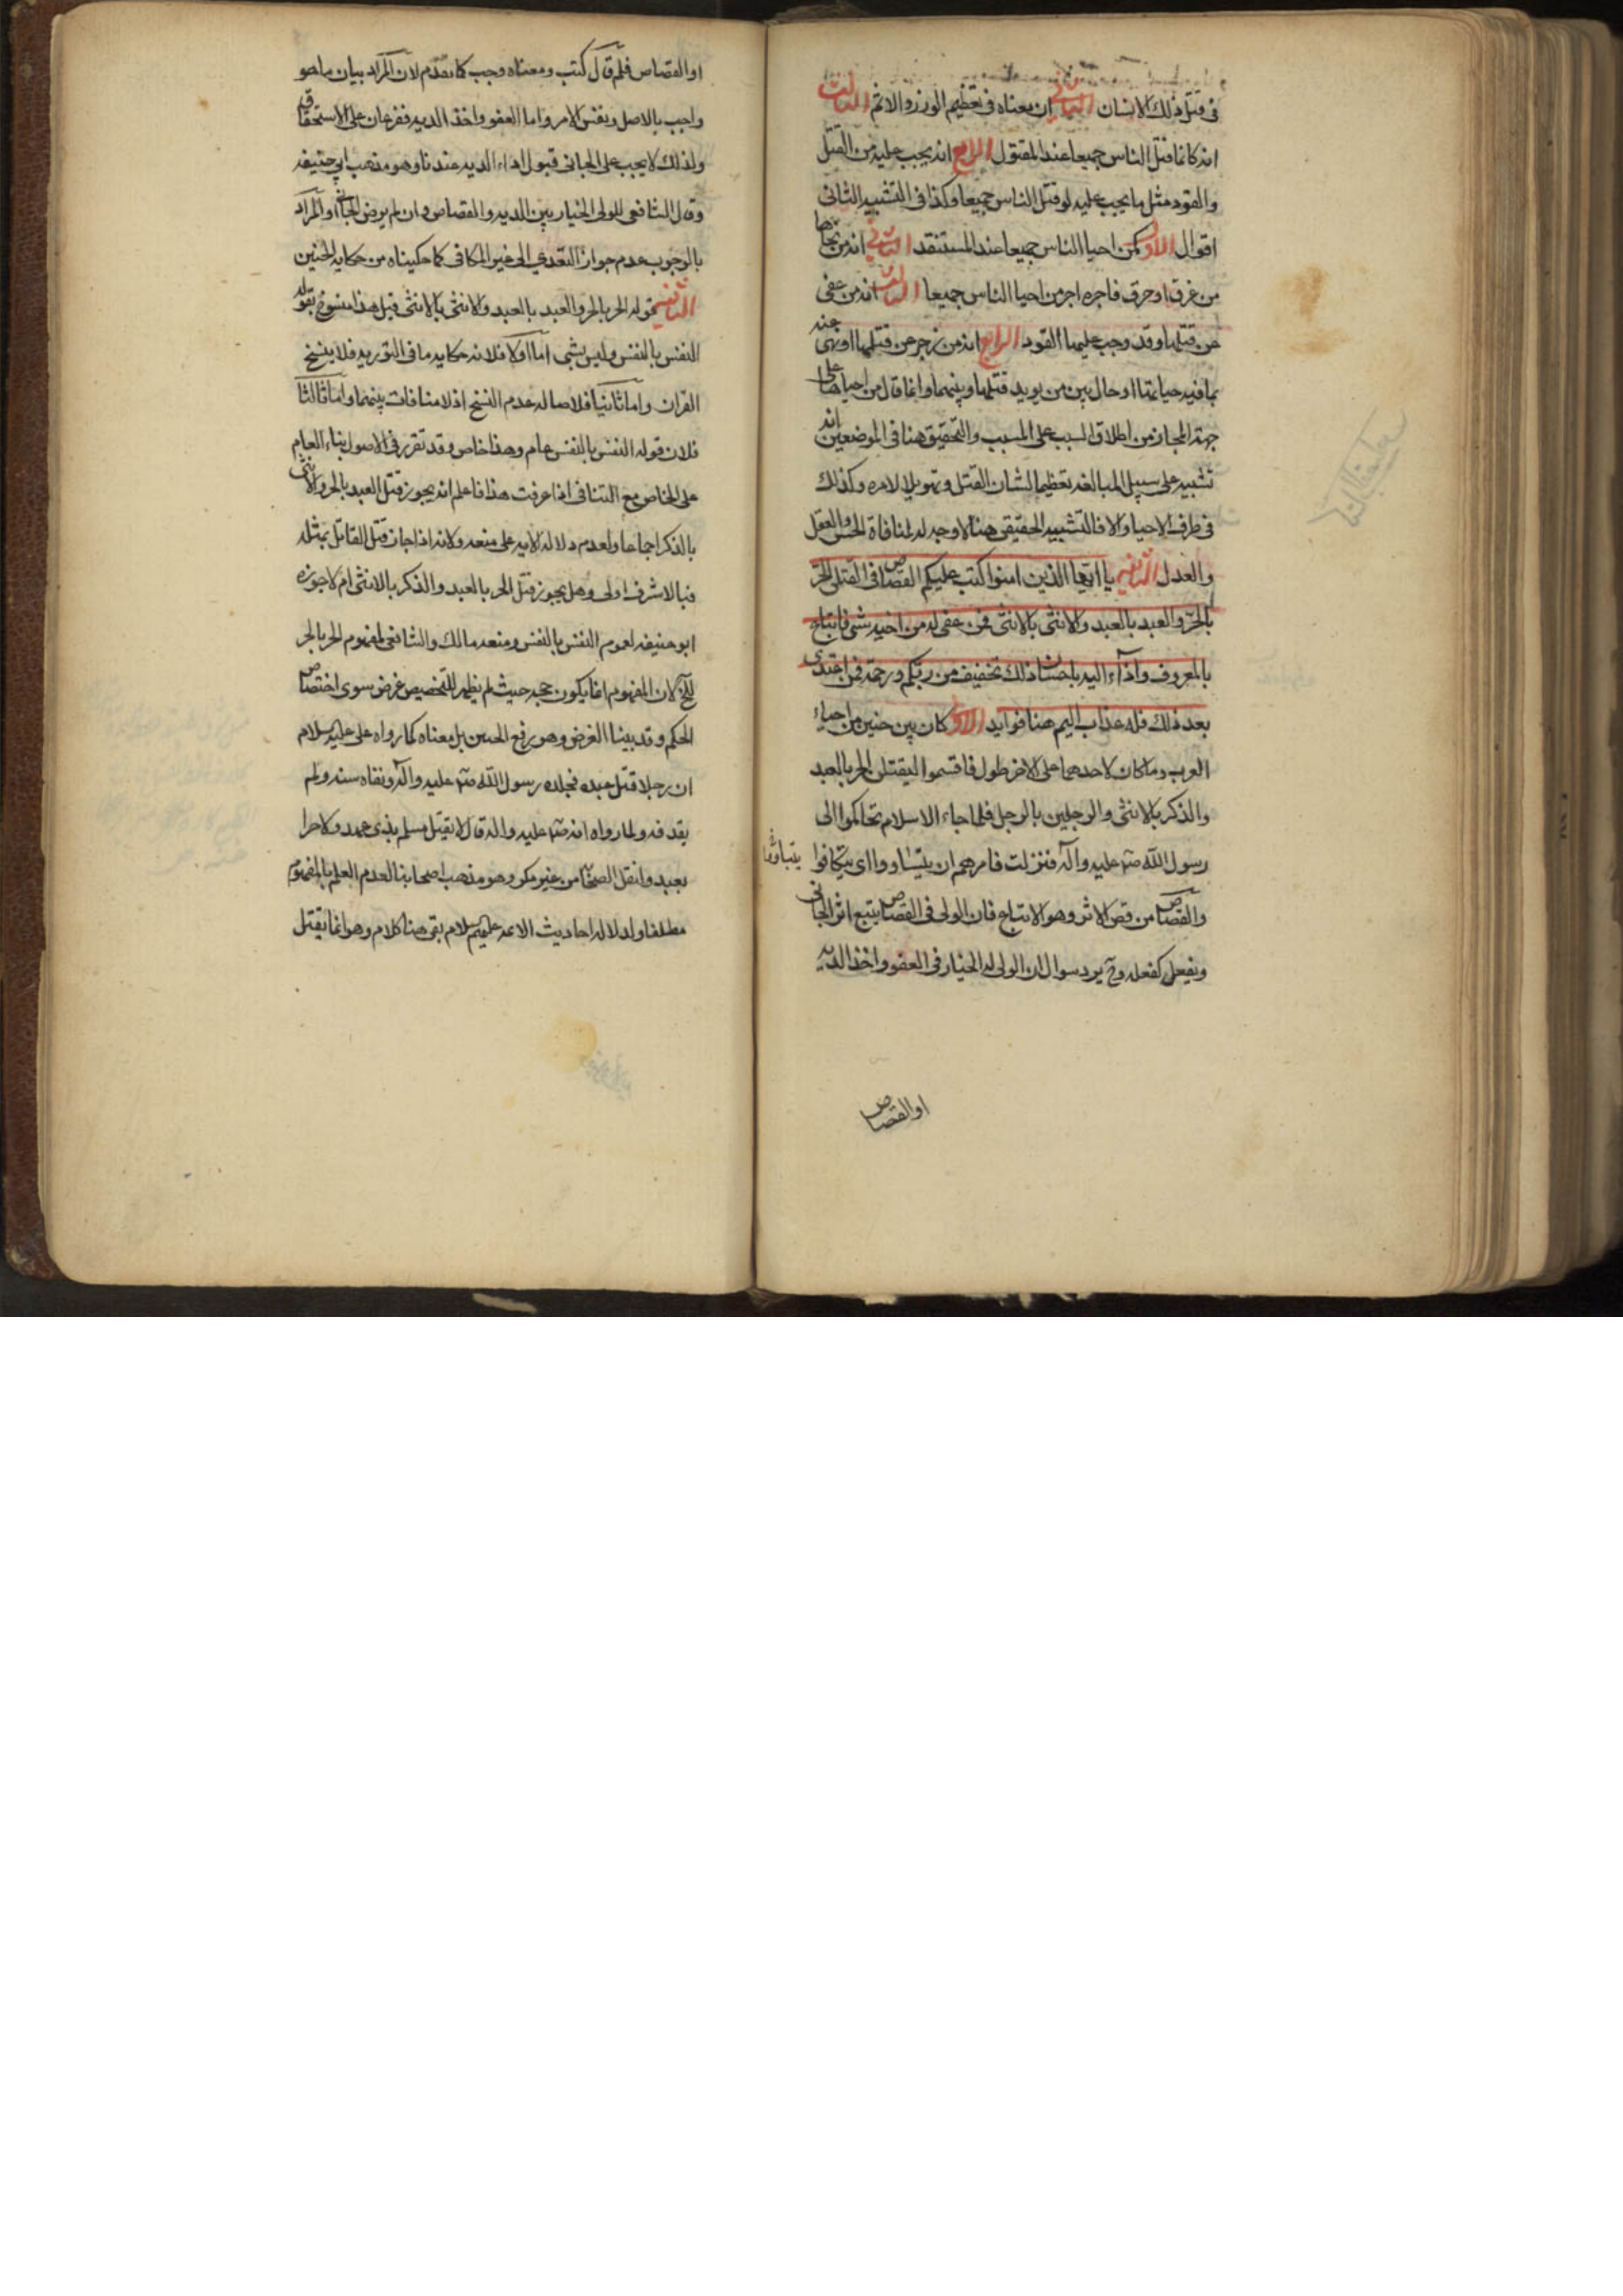 فى قتل ذلك الانسان الثانى ان معناه فى تعظيم الوزر والاثم الثالث
انه كانما قتل الناس جميعا عند المقتول الرابع انه يجب عليه من القتل
والقود مثل ما يجب عليه لو قتل الناس جميعا وكذا فى التشبيه الثانى
اقوال الاول كمن احيا الناس جميعا عند المستنقد الثانى انه من نجاها
من غرق او حرق فاجره اجر من احيا الناس جميعا الثالث انه من عفى
عن قتلها وقد وجب عليها القود الرابع انه من زجر عن قتلها او نهى عنه
بما فيه حياتها او حال بين من يريد قتلها وبينها وانما قال من احياها على
جهة المجاز من اطلاق السبب على المسبب والتحقيق هنا فى الموضعين انه
تشبيه على سبيل المبالغه تعظيما لشان القتل وتهويلا لامره وكذلك
فى طرف الاحيا والا فالتشبيه الحقيقى هنا لا وجه له لمنافاة الحس والعقل
والعدل الثانيه يا ايها الذين امنوا كتب عليكم القصاص فى القتلى الحر
بالحر والعبد بالعبد والانثى بالانثى فمن عفى له من اخيه شى فاتباع
بالمعروف واداء اليه باحسان ذلك تخفيف من ربكم ورحمة فمن اعتدى
بعد ذلك فله عذاب اليم هنا فوايد الاول كان بين حنين من احياء
العرب دما كان لاحدهما على الاخر طول فاقسموا ليقتلن الحر بالعبد
والذكر بالانثى والرجلين بالرجل فلما جاء الاسلام تحاكموا الى
رسول الله صلم عليه وآله فنزلت فامرهم ان يتساووا اى يتكافوا
والقصاص من قص الاثر وهو الاتباع فان الولى فى القصاص يتبع اثر الجانى
ويفعل كفعله وح يرد سوال ان الولى له الخيار فى العفو واخذ الديه
او القصاص
او القصاص فلم قال كتب ومعناه وجب كما تقدم لان المراد بيان ما هو
واجب بالاصل ونفس الامر واما العفو واخذ الديه ففرعان على الاستحقاق
ولذلك لا يجب على الجانى قبول اداء الديه عندنا وهو مذهب ابى حنيفه
وقال الشافعى للولى الخيار بين الديه والقصاص وان لم يرض الجانى او المراد
بالوجوب عدم جواز التعدى الى غير المكافى كما حكيناه من حكايه الحنين
الثانيه قوله الحر بالحر والعبد بالعبد والانثى بالانثى قيل هذا منسوخ بقوله
النفس بالنفس وليس بشى اما اولا فلانه حكايه ما فى التوريه فلا ينسخ
القران واما ثانيا فلاصاله عدم النسخ اذ لا منافات بينهما واما ثالثا
فلان قوله النفس بالنفس عام وهذا خاص وقد تقرر فى الاصول بناء العام
على الخاص مع التنافى اذا عرفت هذا فاعلم انه يجوز قتل العبد بالحر والانثى
بالذكر اجماعا ولعدم دلاله الايه على منعه ولانه اذا جاز قتل القاتل بمثله
فبالاشرف اولى وهل يجوز قتل الحر بالعبد والذكر بالانثى ام لا جوزه
ابو حنيفه لعموم النفس بالنفس ومنعه مالك والشافعى لمفهوم الحر بالحر
لان المفهوم انما يكون حجه حيث لم يظهر للتخصيص غرض سوى اختصاص
الحكم وقد بينا الغرض وهو رفع الحنين بل معناه كما رواه على عليه السلام
ان رجلا قتل عبده فجلده رسول الله صلم عليه وآله ونفاه سنه ولم
يقد فه ولما رواه انه صلم عليه واله قال لا يقتل مسلم بذى عهد ولا حرا
بعبد وانقل الصحابه من غير مكر وهو مذهب اصحابنا لعدم العلم بالمفهوم
مطلقا ولدلاله احاديث الائمه عليهم السلام بقى هنا كلام وهو انما يقتل